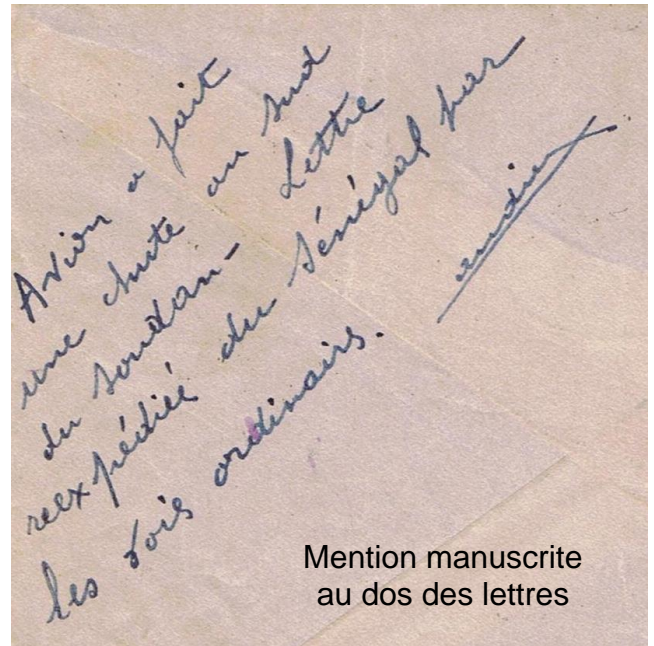 Avion a fait
une chute au sud
du soudan - Lettre
reexpédiée du Sénégal par
les voies ordinairs.
Mention manuscrite
au dos des lettres